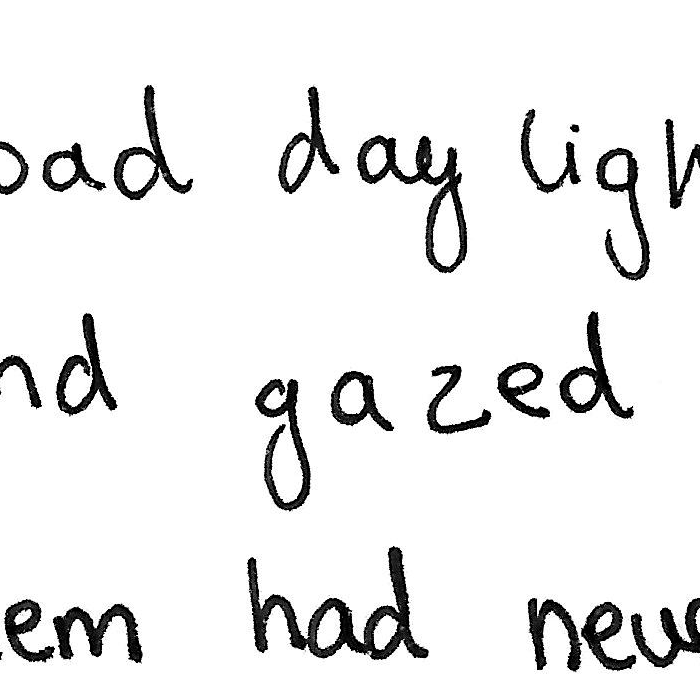 oad day ligh
nd gazed
em had neve